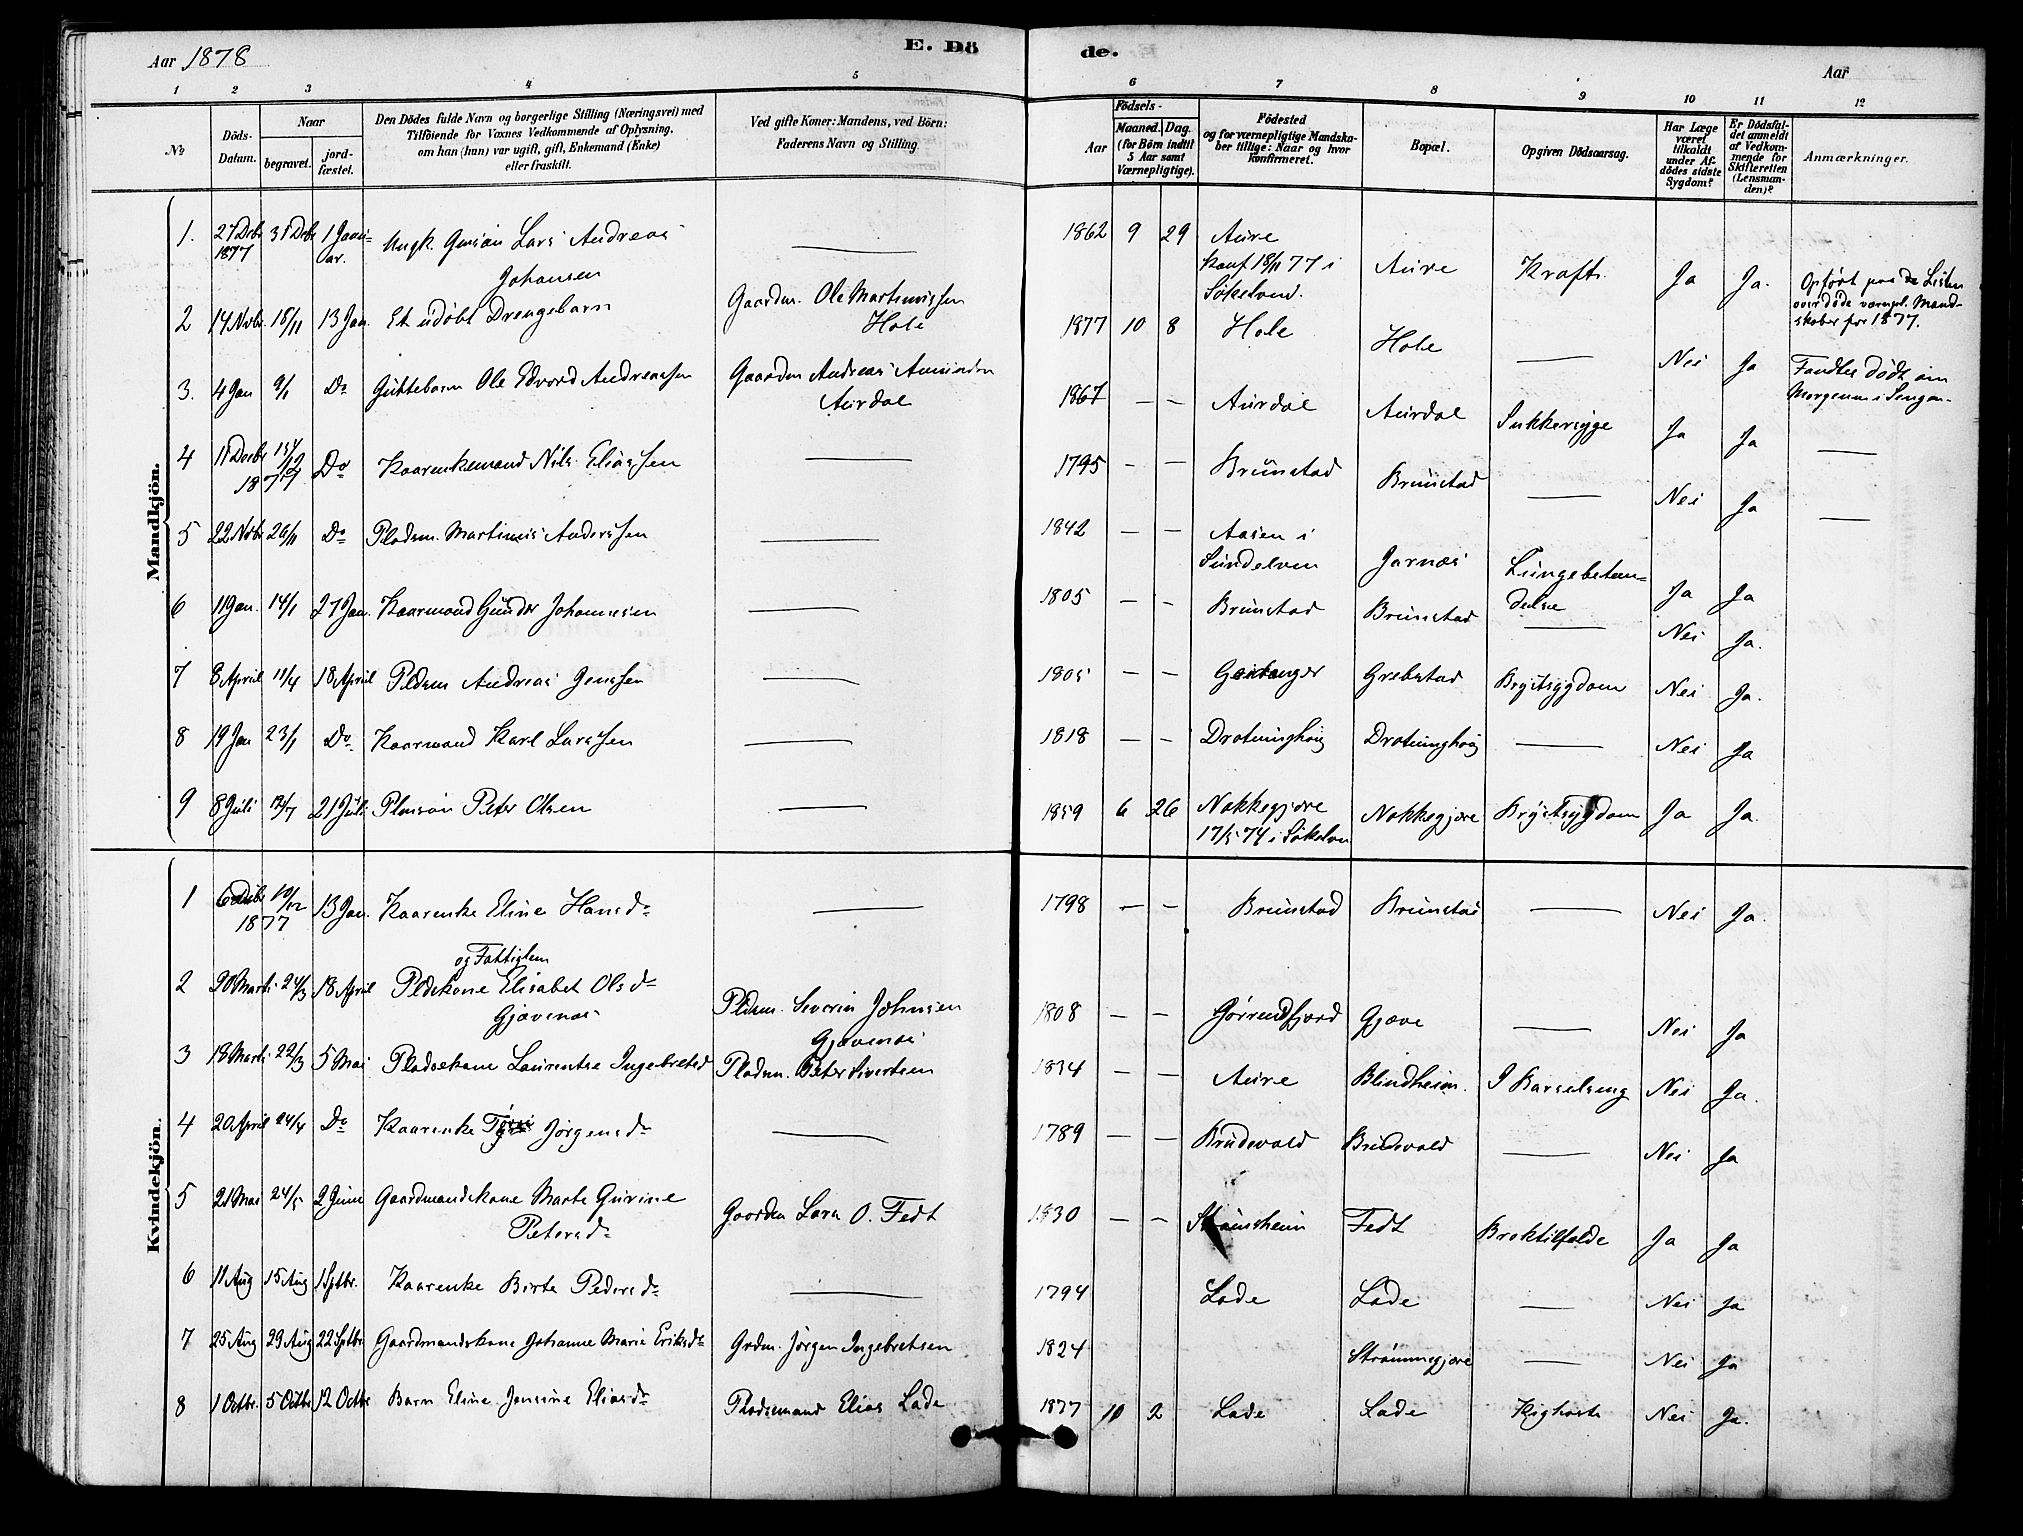 Aar 1878
E. Dö
de.
Aar
1 2 3 4 5 6 7 8 9 10 11 12
No
Döds-Datum.
Naar
begravet.
jord-fæstet.
Den Dödes fulde Navn og borgerlige Stilling (Næringsvei) med
Tilföiende for Voxnes Vedkommende af Oplysning,
om han (hun) var ugift, gift, Enkemand (Enke)
eller fraskilt.
Ved gifte Koner: Mandens, ved Börn:
Faderens Navn og Stilling
Födsels-
Aar
Maaned. Dag.
(for Börn indtil
5 Aar samt
Værnepligtige).
Födested
og for værnepligtige Mandska-
ber tillige: Naar og hvor
konfirmeret.
Bopæl.
Opgiven Dödsaarsag.
Har Læge
været
tilkaldt
under Af-
dödes sidste
Sygdom?
Er Dödsfal-
det anmeldt
af Vedkom-
mende for
Skifteretten
(Lensman-
den)?
Anmærkninger.
Mandkjön.
1. 27 Decbr 1877 31 Decbr 1 Januar. Ungk. Lars Andreas Johansen — 1862 9 29 Aure Konf 18/11 77 i Søkelven. Aure Kræft. Ja Ja. Opført paa de Listen over døde værnepl. Mandskaber for 1877.
2 14 Novbr. 18/11 13 Jan. Et udøbt Drengebarn Gaardm. Ole Martinussen Hole 1877 10 8 Hole Hole — Nei Ja Fandtes dødt om Morgenen i Sengen.
3. 4 Jan 9/1 Do Guttebarn Ole Edvard Andreassen Gaardm Andreas Amundsen Aurdal 1867 — — Aurdal Aurdal Sukkersyge Ja Ja —
4 11 Decbr 15/12 1877 Do Kaarenkemand Nils Eliassen — 1795 — — Brunstad Brunstad — Nei Ja —
5 22 Novbr 26/11 Do Pladsm. Martinus Anderssen — 1842 — — Aasen i Sundelven Jarnæs Lungebetændelse Ja Ja
6 11 Jan. 14/1 27 Jan. Kaarmand Gunder Johannesen — 1805 — — Brunstad Brunstad — Nei Ja.
7 8 April 11/4 18 April Pldsm Andreas Jenssen — 1805 — — Geiranger Grebstad Brystsygdom Nei Ja.
8 19 Jan 23/1 Do. Kaarmand Karl Larssen — 1818 — — Drotninghoug Drotninghoug — Nei Ja
9 8 Juli 12/7 21 Juli Peter Olsen — 1859 6 26 Nakkegjære 17/5 74 i Søkelven Nakkegjære Brystsygdom Ja Ja.
Kvindekjön.
1 6 Decbr 10/12 1877 13 Jan. Kaarenke Eline Hansdr — 1798 — — Brunstad Brunstad — Nei Ja.
2 20 Marts 24/3 18 April og Fattiglem Pldskone Elisabet Olsdr Gjævenæs Pldsm. Severin Johnsen Gjævenæs 1808 — — Jørrendfjord Gjæve — Nei Ja
3 18 Marts 22/3 5 Mai Pladsekone Laurentse Ingebretsd Pladsm. Peter Sivertsen 1834 — — Aure Blindheim. I Barselseng Nei Ja.
4 20 April 24/4 Do Kaarenke Jørgensdr — 1789 — — Brudevold Brudevold — Nei Ja
5 21 Mai 24/5 2 Juni Gaardmandskone Marte Gurine Petersdr Gaardm Lars O. Fedt 1830 — — Straumsheim Fedt Broktilfælde Ja Ja
6 11 Aug 15 Aug 1 Sptbr. Kaarenke Birte Pedersdr — 1794 Lade Lade — Nei Ja
7 25 Aug 29 Aug 22 Sptbr Gaardmandskone Johanne Marie Eriksdr Grdm. Jørgen Ingebretsen 1824 Strømmegjære — Nei Ja
8 1 Octbr. 5 Octbr 12 Octbr Barn Eline Jensine Eliasdr Pladsemand Elias Lade 1877 10 2 Lade Lade Kighoste Nei Ja.